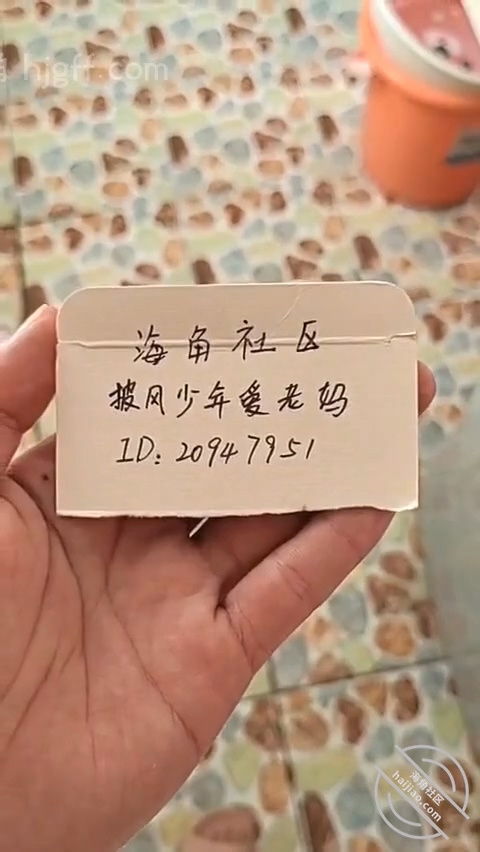 hjgff.com
海角社区
披风少年爱老妈
ID: 20947951
海角社区
haijiao.com